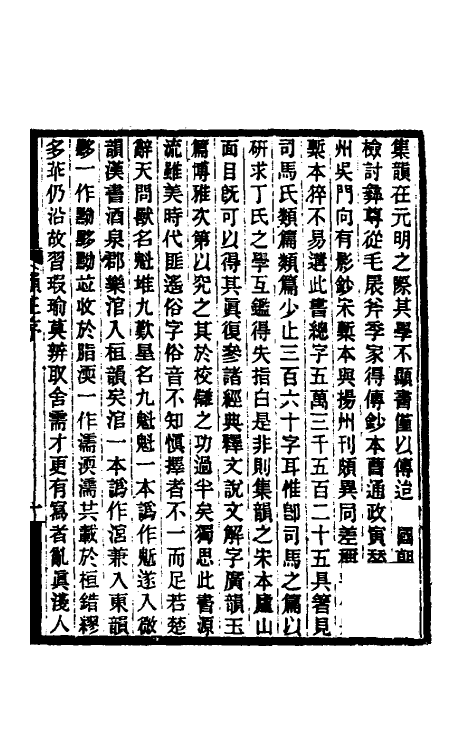 集韻在元明之際其學不顯書僅以傳迨 國朝
檢討彝尊從毛扆斧季家得傳鈔本曹通政寅琹
州吳門向有影鈔宋槧本與揚州刊頗異同差
槧本猝不易遘此書總字五萬三千五百二十五具箸見
司馬氏類篇類篇少止三百六十字耳惟卽司馬之篇以
硏求丁氏之學互鑑得失指白是非則集韻之宋本廬山
面目旣可以得其眞復參諸經典釋文說文解字廣韻玉
篇博雅次第以究之其於校讎之功過半矣獨思此書源
流雖美時代匪遙俗字俗音不知愼擇者不一而足若楚
辭天問獸名魁堆九歎星名九魁魁一本譌作鬿遂入微
韻漢書酒泉郡樂涫入桓韻矣涫一本譌作涫兼入東韻
黟一作黝黟黝竝收於脂渜一作濡渜濡其載於桓錯繆
多茀仍沿故習瑕瑜莫辨取舍需才更有寫者亂眞淺人